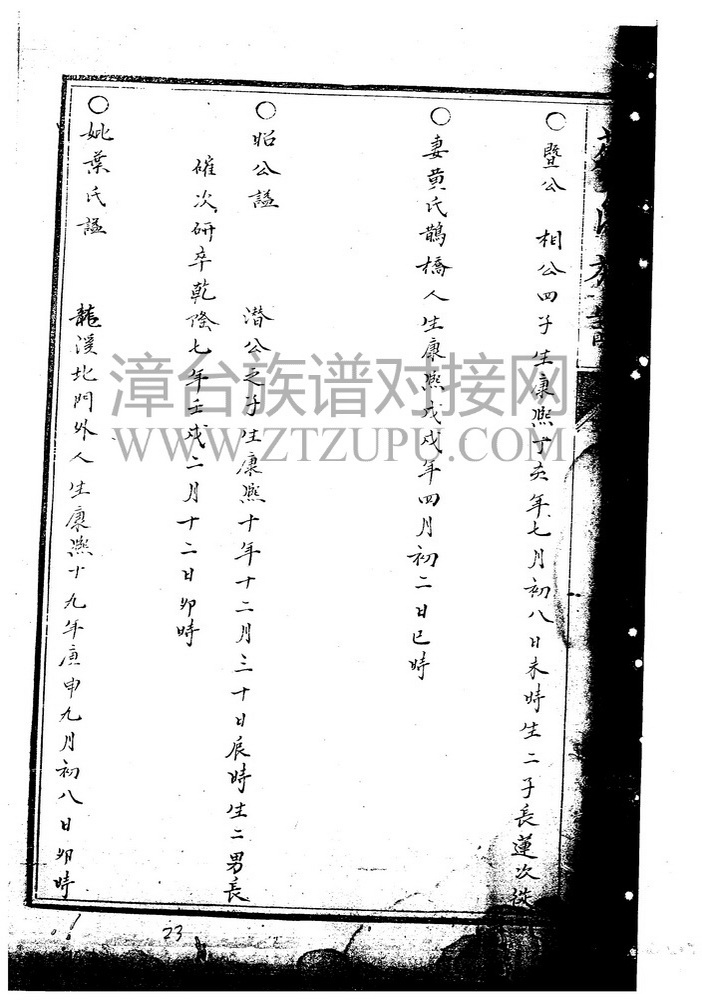 ○暨公 相公四子生康熙丁亥年七月初八日未時生二子長蓮次
○妻黄氏鵲橋人生康熙戊戌年四月初二日巳時
○昭公諡 潛公之子生康熙十年十二月三十日辰時生二男長
確次研卒乾隆七年壬戌二月十二日卯時
○妣葉氏諡 龍溪北門外人生康熙十九年庚申九月初八日卯時
漳台族谱对接网
WWW.ZTZUPU.COM
23